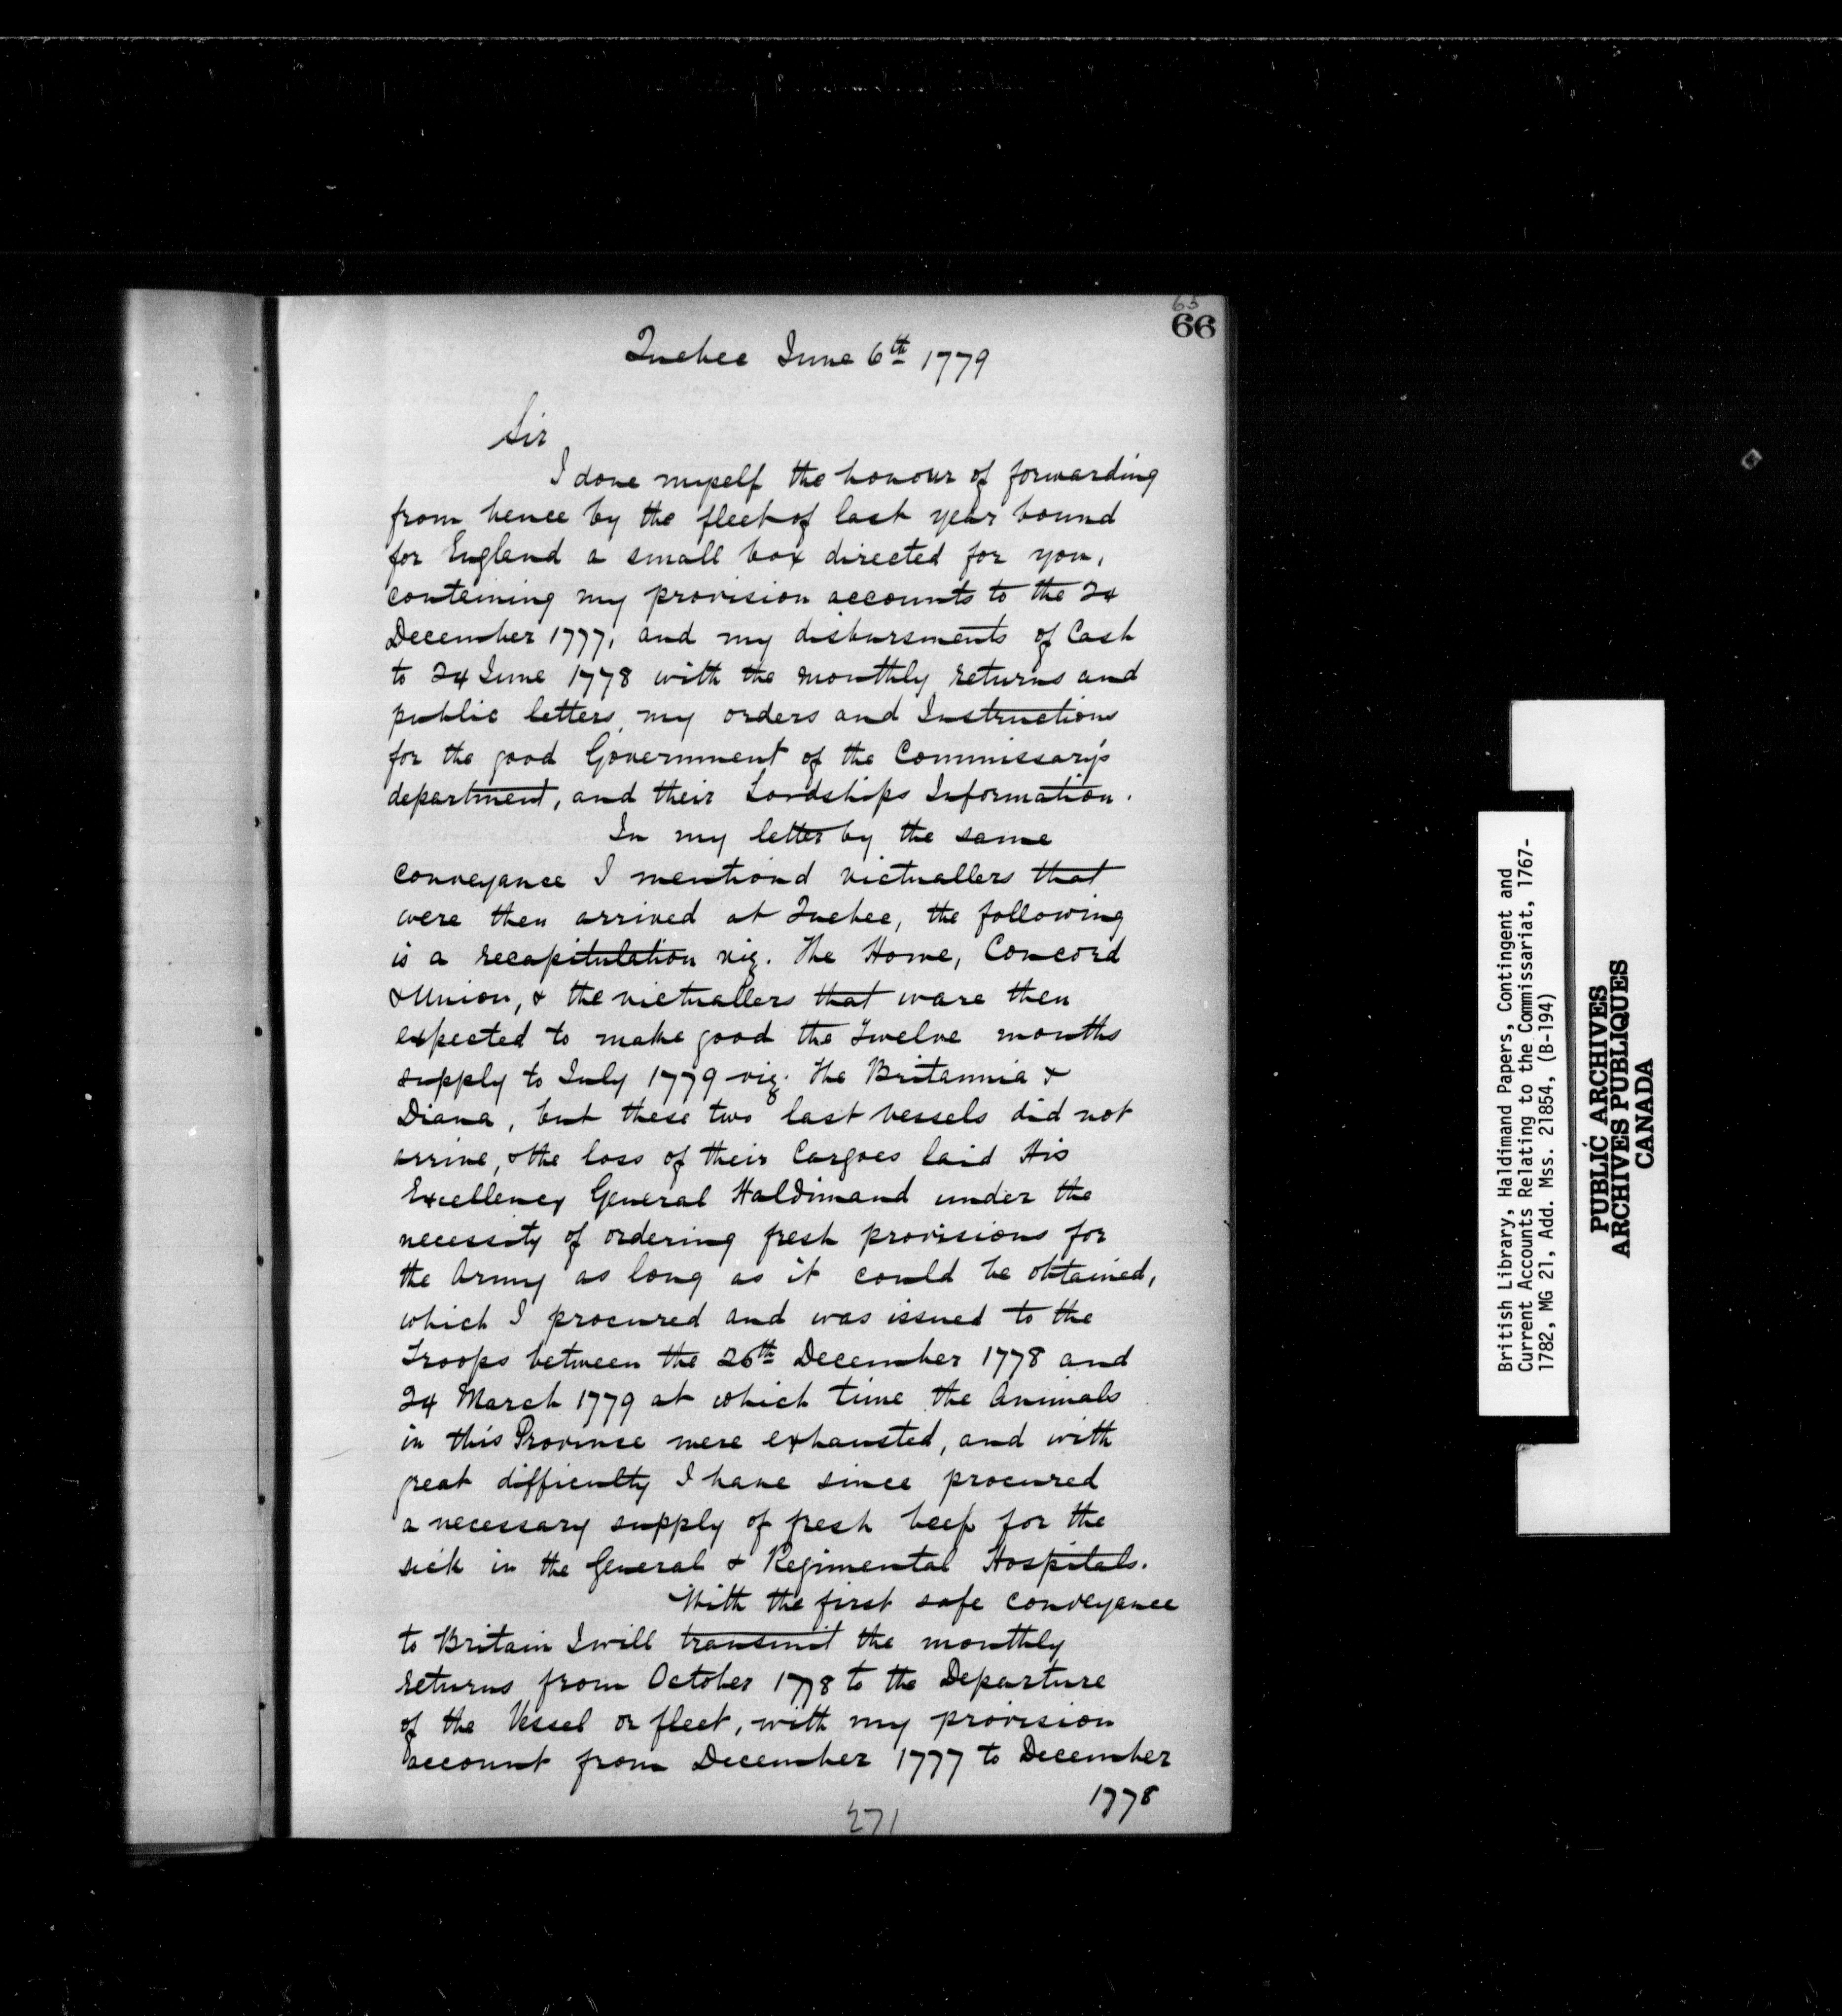 65
66
Quebec June 6th 1779
Sir
I done myself the honour of forwarding
from hence by the fleet of last year bound
for England a small box directed for you,
conteining my provision accounts to the 24
December 1777, and my disbursments of Cash
to 24 June 1778 with the monthly returns and
public letters, my orders and Instructions
for the good Government of the Commissary's
department, and their Lordships Information.
In my letter by the same
conveyance I mentiond victuallers that
were then arrived at Quebec, the following
is a recapitulation viz. The Home, Concord
& Union, & the victuallers that ware then
expected to make good the Twelve months
supply to July 1779 viz. The Britannia &
Diana, but these two last vessels did not
arrive, & the loss of their Cargoes laid His
Excellency General Haldimand under the
necessity of ordering fresh provisions for
the Army as long as it could be obtained,
which I procured and was issued to the
Troops between the 26th December 1778 and
24 March 1779 at which time the Animals
in this Province were exhausted, and with
great difficulty I have since procured
a necessary supply of fresh beef for the
sick in the General & Regimental Hospitals.
With the first safe conveyance
to Britain I will transmit the monthly
returns from October 1778 to the Departure
of the Vessel or fleet, with my provision
account from December 1777 to December
1778
271
British Library, Haldimand Papers, Contingent and
Current Accounts Relating to the Commissariat, 1767-
1782, MG 21, Add. Mss. 21854, (B-194)
PUBLIC ARCHIVES
ARCHIVES PUBLIQUES
CANADA